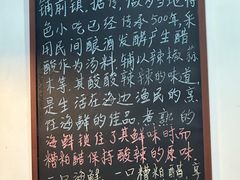 铺前镇,据传,做为当地特
色小吃已经传承500年,采
用民间酿酒发酵产生醋
酸作为汤料,辅以辣椒蒜
末等,其酸酸辣辣的味道,
是生活在海边渔民的烹
任海鲜的佳品,煮熟的
海鲜锁住了其鲜味时而
糟粕醋保持酸辣的原味
一口海鲜,一口糟粕醋,享